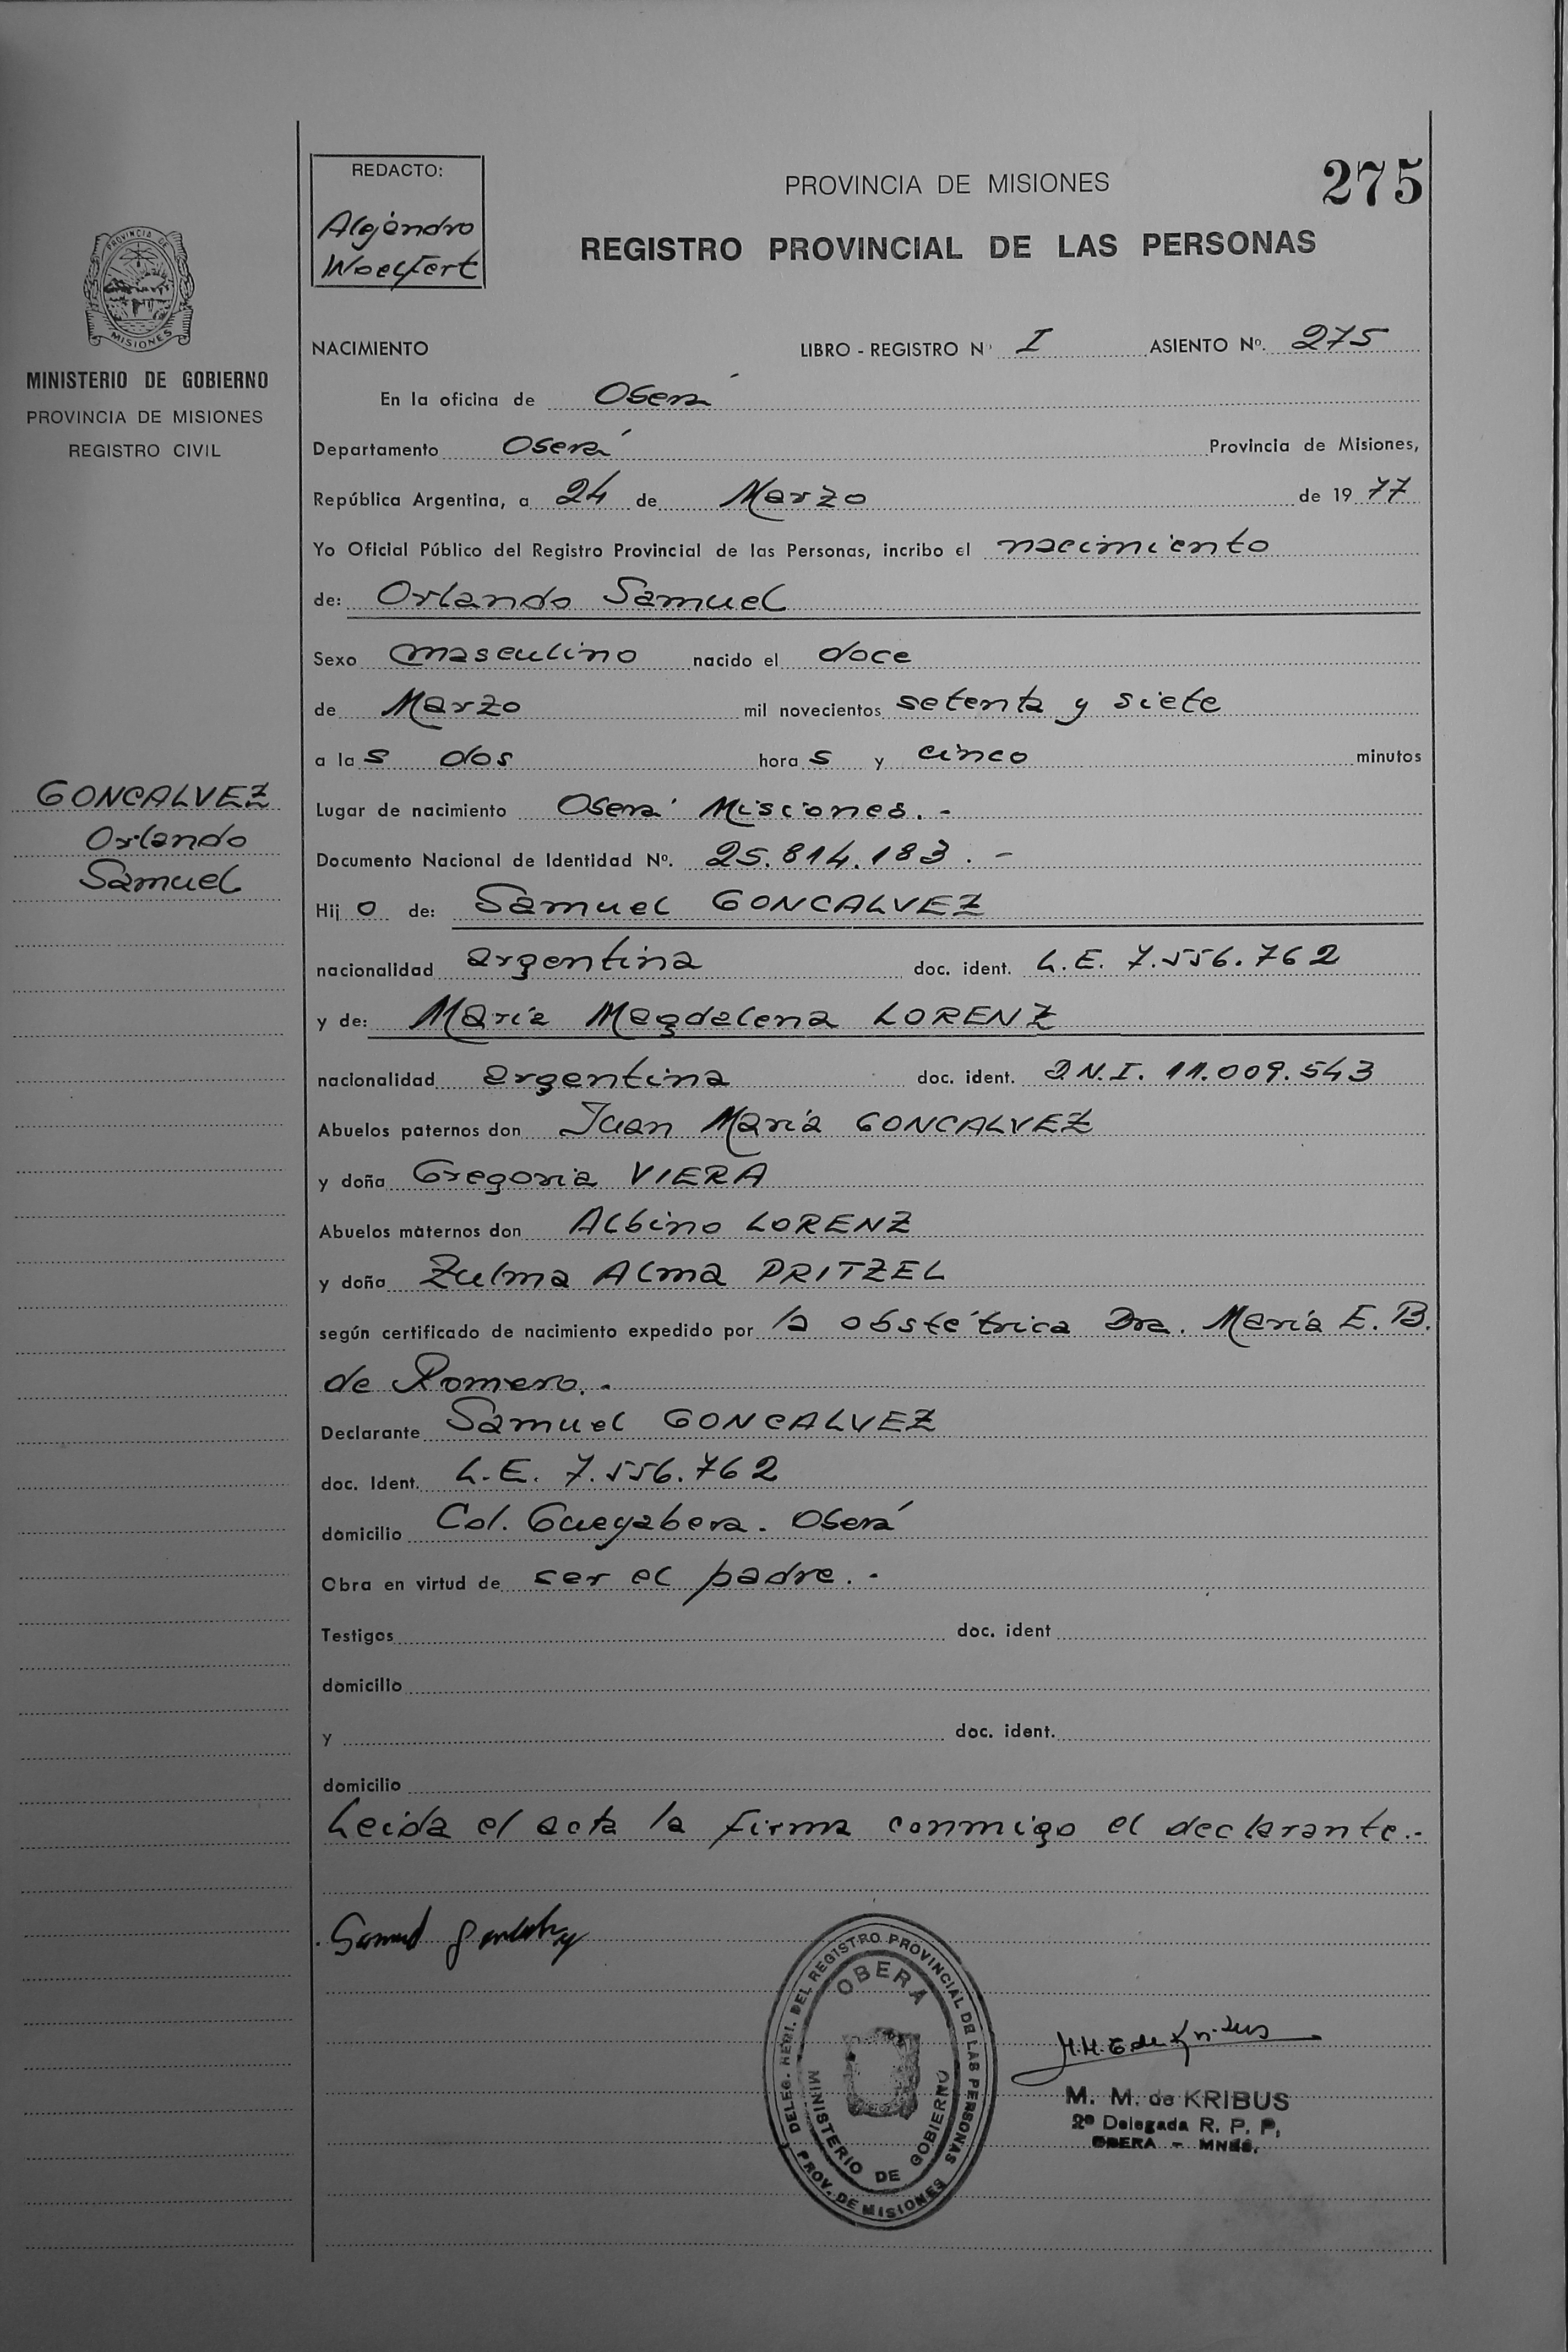 REDACTO:
Alejandro
Woelfert
PROVINCIA DE MISIONES
275
REGISTRO PROVINCIAL DE LAS PERSONAS
PROVINCIA DE
MISIONES
MINISTERIO DE GOBIERNO
PROVINCIA DE MISIONES
REGISTRO CIVIL
GONCALVEZ
Orlando
Samuel
NACIMIENTO LIBRO - REGISTRO Nº I ASIENTO Nº. 275
En la oficina de Oberá
Departamento Oberá Provincia de Misiones,
República Argentina, a 24 de Marzo de 1977
Yo Oficial Público del Registro Provincial de las Personas, incribo el nacimiento
de: Orlando Samuel
Sexo masculino nacido el doce
de Marzo mil novecientos setenta y siete
a las dos horas y cinco minutos
Lugar de nacimiento Oberá Misiones. -
Documento Nacional de Identidad Nº. 25.814.183. -
Hijo de: Samuel GONCALVEZ
nacionalidad argentina doc. ident. L.E. 7.556.762
y de: María Magdalena LORENZ
nacionalidad argentina doc. ident. D.N.I. 11.009.543
Abuelos paternos don Juan María GONCALVEZ
y doña Gregoria VIERA
Abuelos maternos don Albino LORENZ
y doña Zulma Alma PRITZEL
según certificado de nacimiento expedido por la obstétrica Dra. María E. B.
de Romero. -
Declarante Samuel GONCALVEZ
doc. Ident. L.E. 7.556.762
domicilio Col. Guayabera. Oberá
Obra en virtud de ser el padre. -
Testigos doc. ident
domicilio
y doc. ident.
domicilio
Leida el acta la firma conmigo el declarante.-
Samuel
DELEG. DEL REGISTRO PROVINCIAL DE LAS PERSONAS
PROV. DE MISIONES
OBERA
MINISTERIO DE GOBIERNO
M. M. de KRIBUS
2ª Delegada R. P. P.
OBERA - MNES.